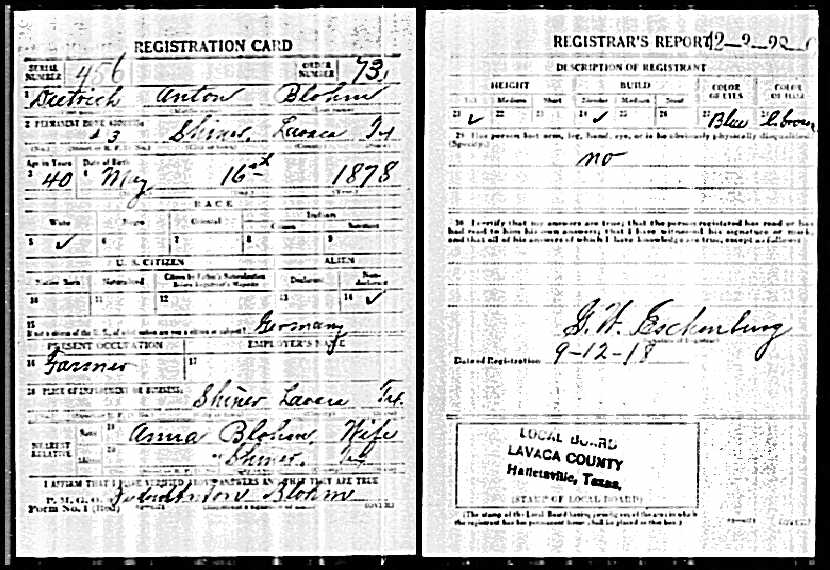 REGISTRATION CARD
SERIAL NUMBER 456 ORDER NUMBER 73
1 Dietrich Anton Blohm
2 PERMANENT HOME ADDRESS:
3 Shiner, Lavaca Tx
Age in Years Date of Birth
3 40 4 May 16th 1878
RACE
White Negro Oriental Indian
Citizen
5 ✓ 6 7 8 9
U. S. CITIZEN ALIEN
Native Born Naturalized Citizen by Father's Naturalization Before Registrant's Majority Declarant Non-declarant
10 11 12 13 14 ✓
15 Germany
If not a citizen of the U. S., of what nation are you a citizen or subject?
PRESENT OCCUPATION EMPLOYER'S NAME
16 Farmer 17
18 PLACE OF EMPLOYMENT OR BUSINESS:
Shiner Lavaca Tx.
NEAREST RELATIVE
Name 19 Anna Blohm, Wife
20 Shiner,
I AFFIRM THAT I HAVE VERIFIED ABOVE ANSWERS AND THAT THEY ARE TRUE
P. M. G. O.
Form No. 1 (Red) Blohm
REGISTRAR'S REPORT
DESCRIPTION OF REGISTRANT
HEIGHT BUILD COLOR OF EYES COLOR OF HAIR
Tall Medium Short Slender Medium Stout
21 ✓ 22 23 24 ✓ 25 26 27 Blue 28
29 Has person lost arm, leg, hand, eye, or is he obviously physically disqualified?
(Specify.)
no
30 I certify that my answers are true; that the person registered has read or has
had read to him his own answers; that I have witnessed his signature or mark,
and that all of his answers of which I have knowledge are true, except as follows:
Eschenburg
Date of Registration 9-12-18
LOCAL BOARD
LAVACA COUNTY
Halletsville, Texas,
(STAMP OF LOCAL BOARD)
(The stamp of the Local Board having jurisdiction of the area in which
the registrant has his permanent home shall be placed in this box.)